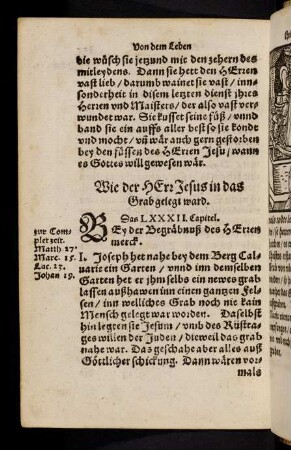 Von dem Leben
die wüsch sie jetzund mit den zehern des
mitleydens. Dann sie hett den HErren
vast lieb / darumb wainet sie vast / inn-
sonderheit in disem letzten dienst jhres
Herren vnd Maisters / der also vast ver-
wundet war. Sie kusset seine füß / vnnd
band sie ein auffs aller best so sie kondt
vnd mocht / vñ wär auch gern gestorben
bey den füssen des HErren Jesu / wann
es Gottes will gewesen wär.
Wie der HErr Jesus in das
Grab gelegt ward.
Das LXXXII. Capitel.
BEy der Begräbnuß des HErren
merck.
zur Com-
plet zeit.
Matth 27.
Marc. 15.
Luc. 23.
Johan 19.
I. Joseph het nahe bey dem Berg Cal-
uarie ein Garten / vnnd inn demselben
Garten het er jhm selbs ein newes grab
lassen außhawen inn einen gantzen Fel-
sen / inn welliches Grab noch nie kain
Mensch gelegt war worden. Daselbst
hin legten sie Jesum / vmb des Rüsttags
willen der Juden / dieweil das grab
nahe war. Das geschahe aber alles auß
Göttlicher schickung. Dann wären vor-
mals